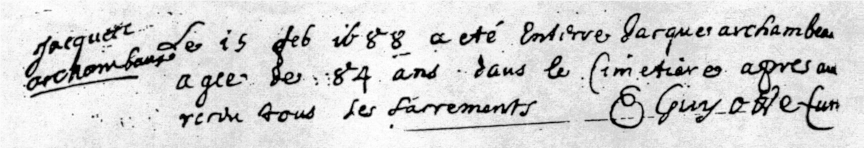 Jacques
archambault
Le 15 feb 1688 a eté Enterre Jacques archambeau
agee de 84 ans dans le Cimetiere apres au
recu tous les sacrements E Guyotte Cur